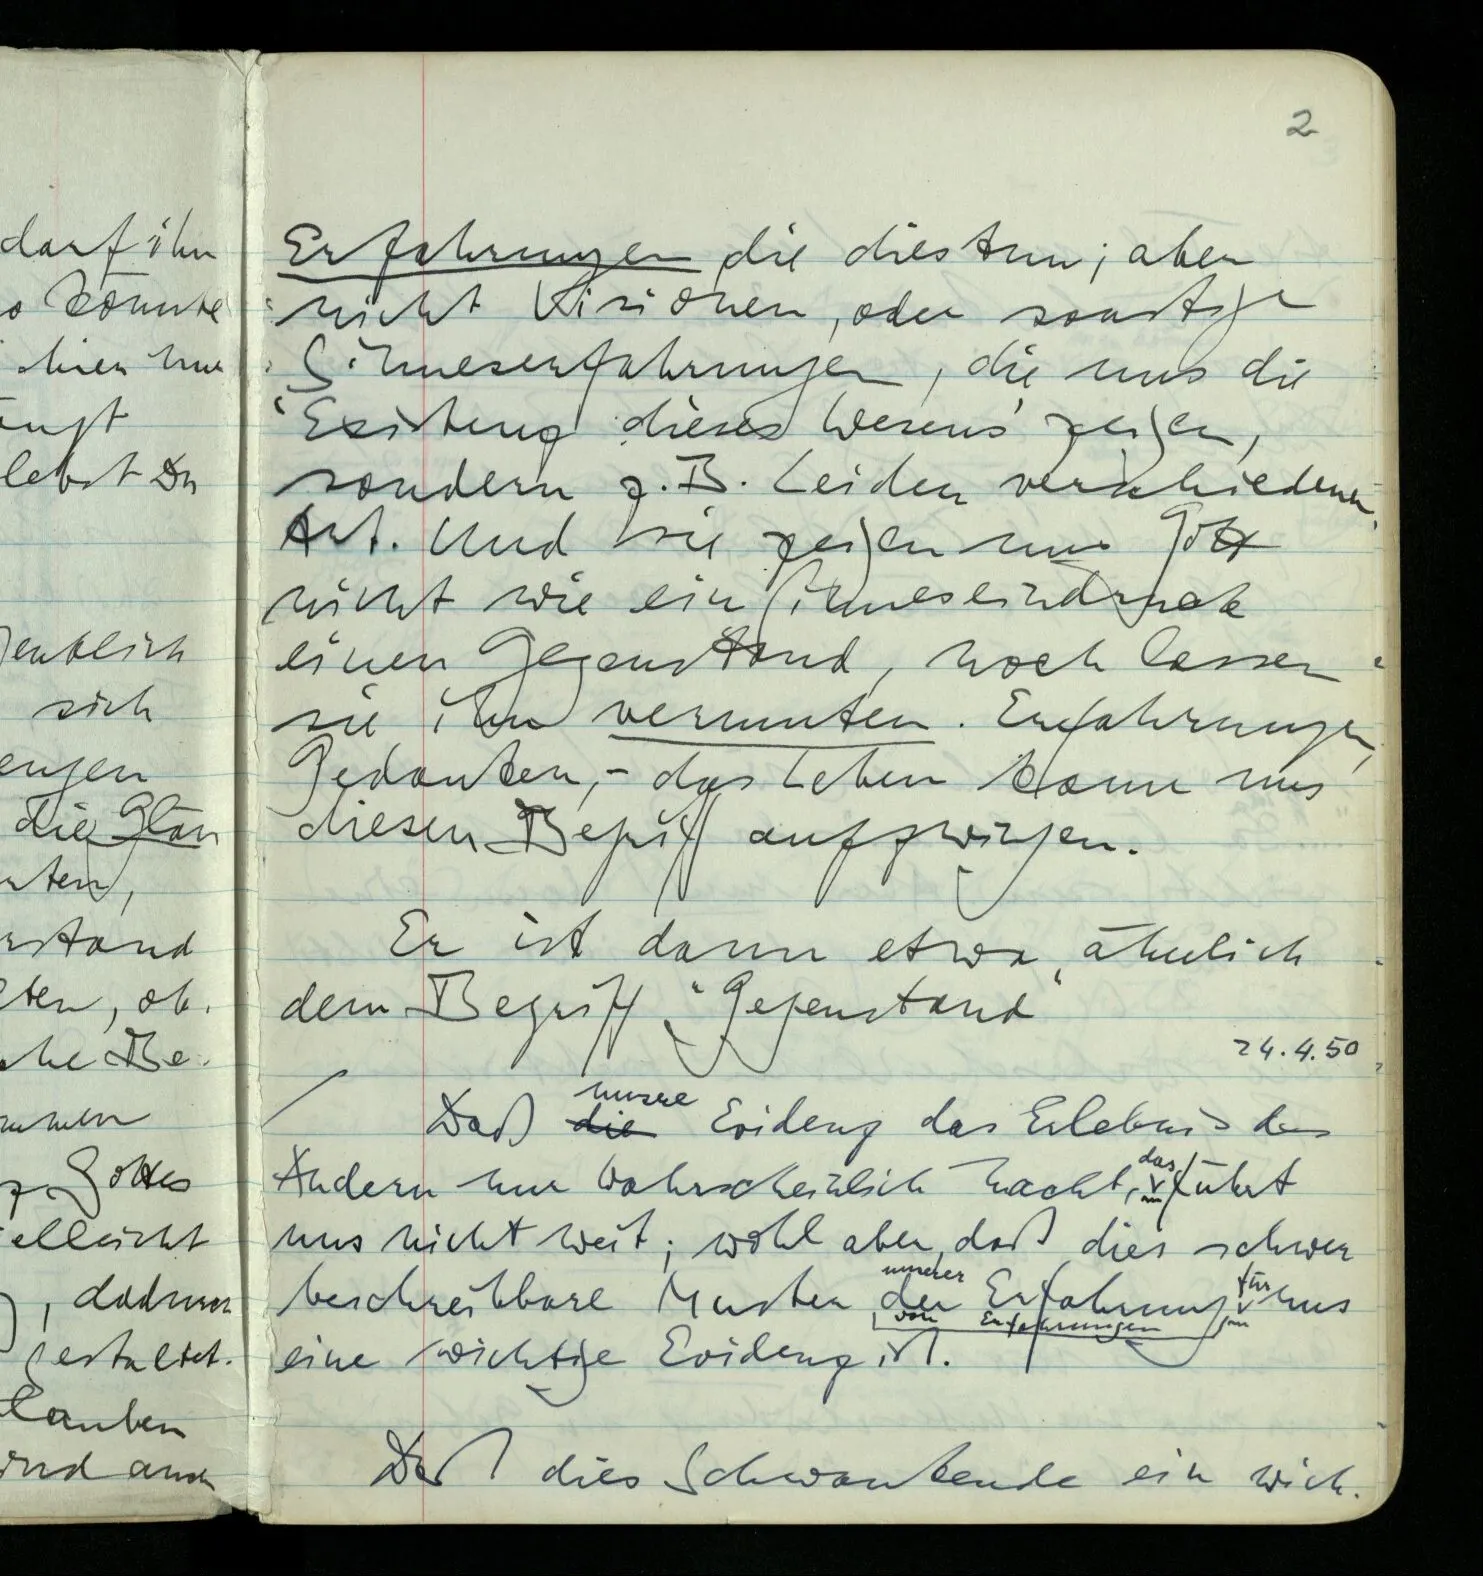 darf ihn
so könnte
hier nur
lebst Du
sich
die Glau
standen
ob.
che Be.
Gottes
vielleicht
, dadurch
gestaltet.
Glauben
und auch
2
Erfahrungen die dies tun; aber
nicht Visionen, oder sonstige
Sinneserfahrungen, die uns die
'Existenz dieses Wesens' zeigen,
sondern z.B. Leiden verschiedener
Art. Und sie zeigen uns Gott
nicht wie ein Sinneseindruck
einen Gegenstand, noch lassen
sie ihn vermuten. Erfahrungen,
Gedanken, – das Leben kann uns
diesen Begriff aufzwingen.
Er ist dann etwa ähnlich
dem Begriff "Gegenstand"
24.4.50
/ Daß die unsre Evidenz das Erlebnis des
Andern nur wahrscheinlich macht, das führt
uns nicht weit; wohl aber, daß dies schwer
beschreibbare Muster der unserer Erfahrung für uns
von Erfahrungen
eine wichtige Evidenz ist.
Daß dies Schwankende ein wich-